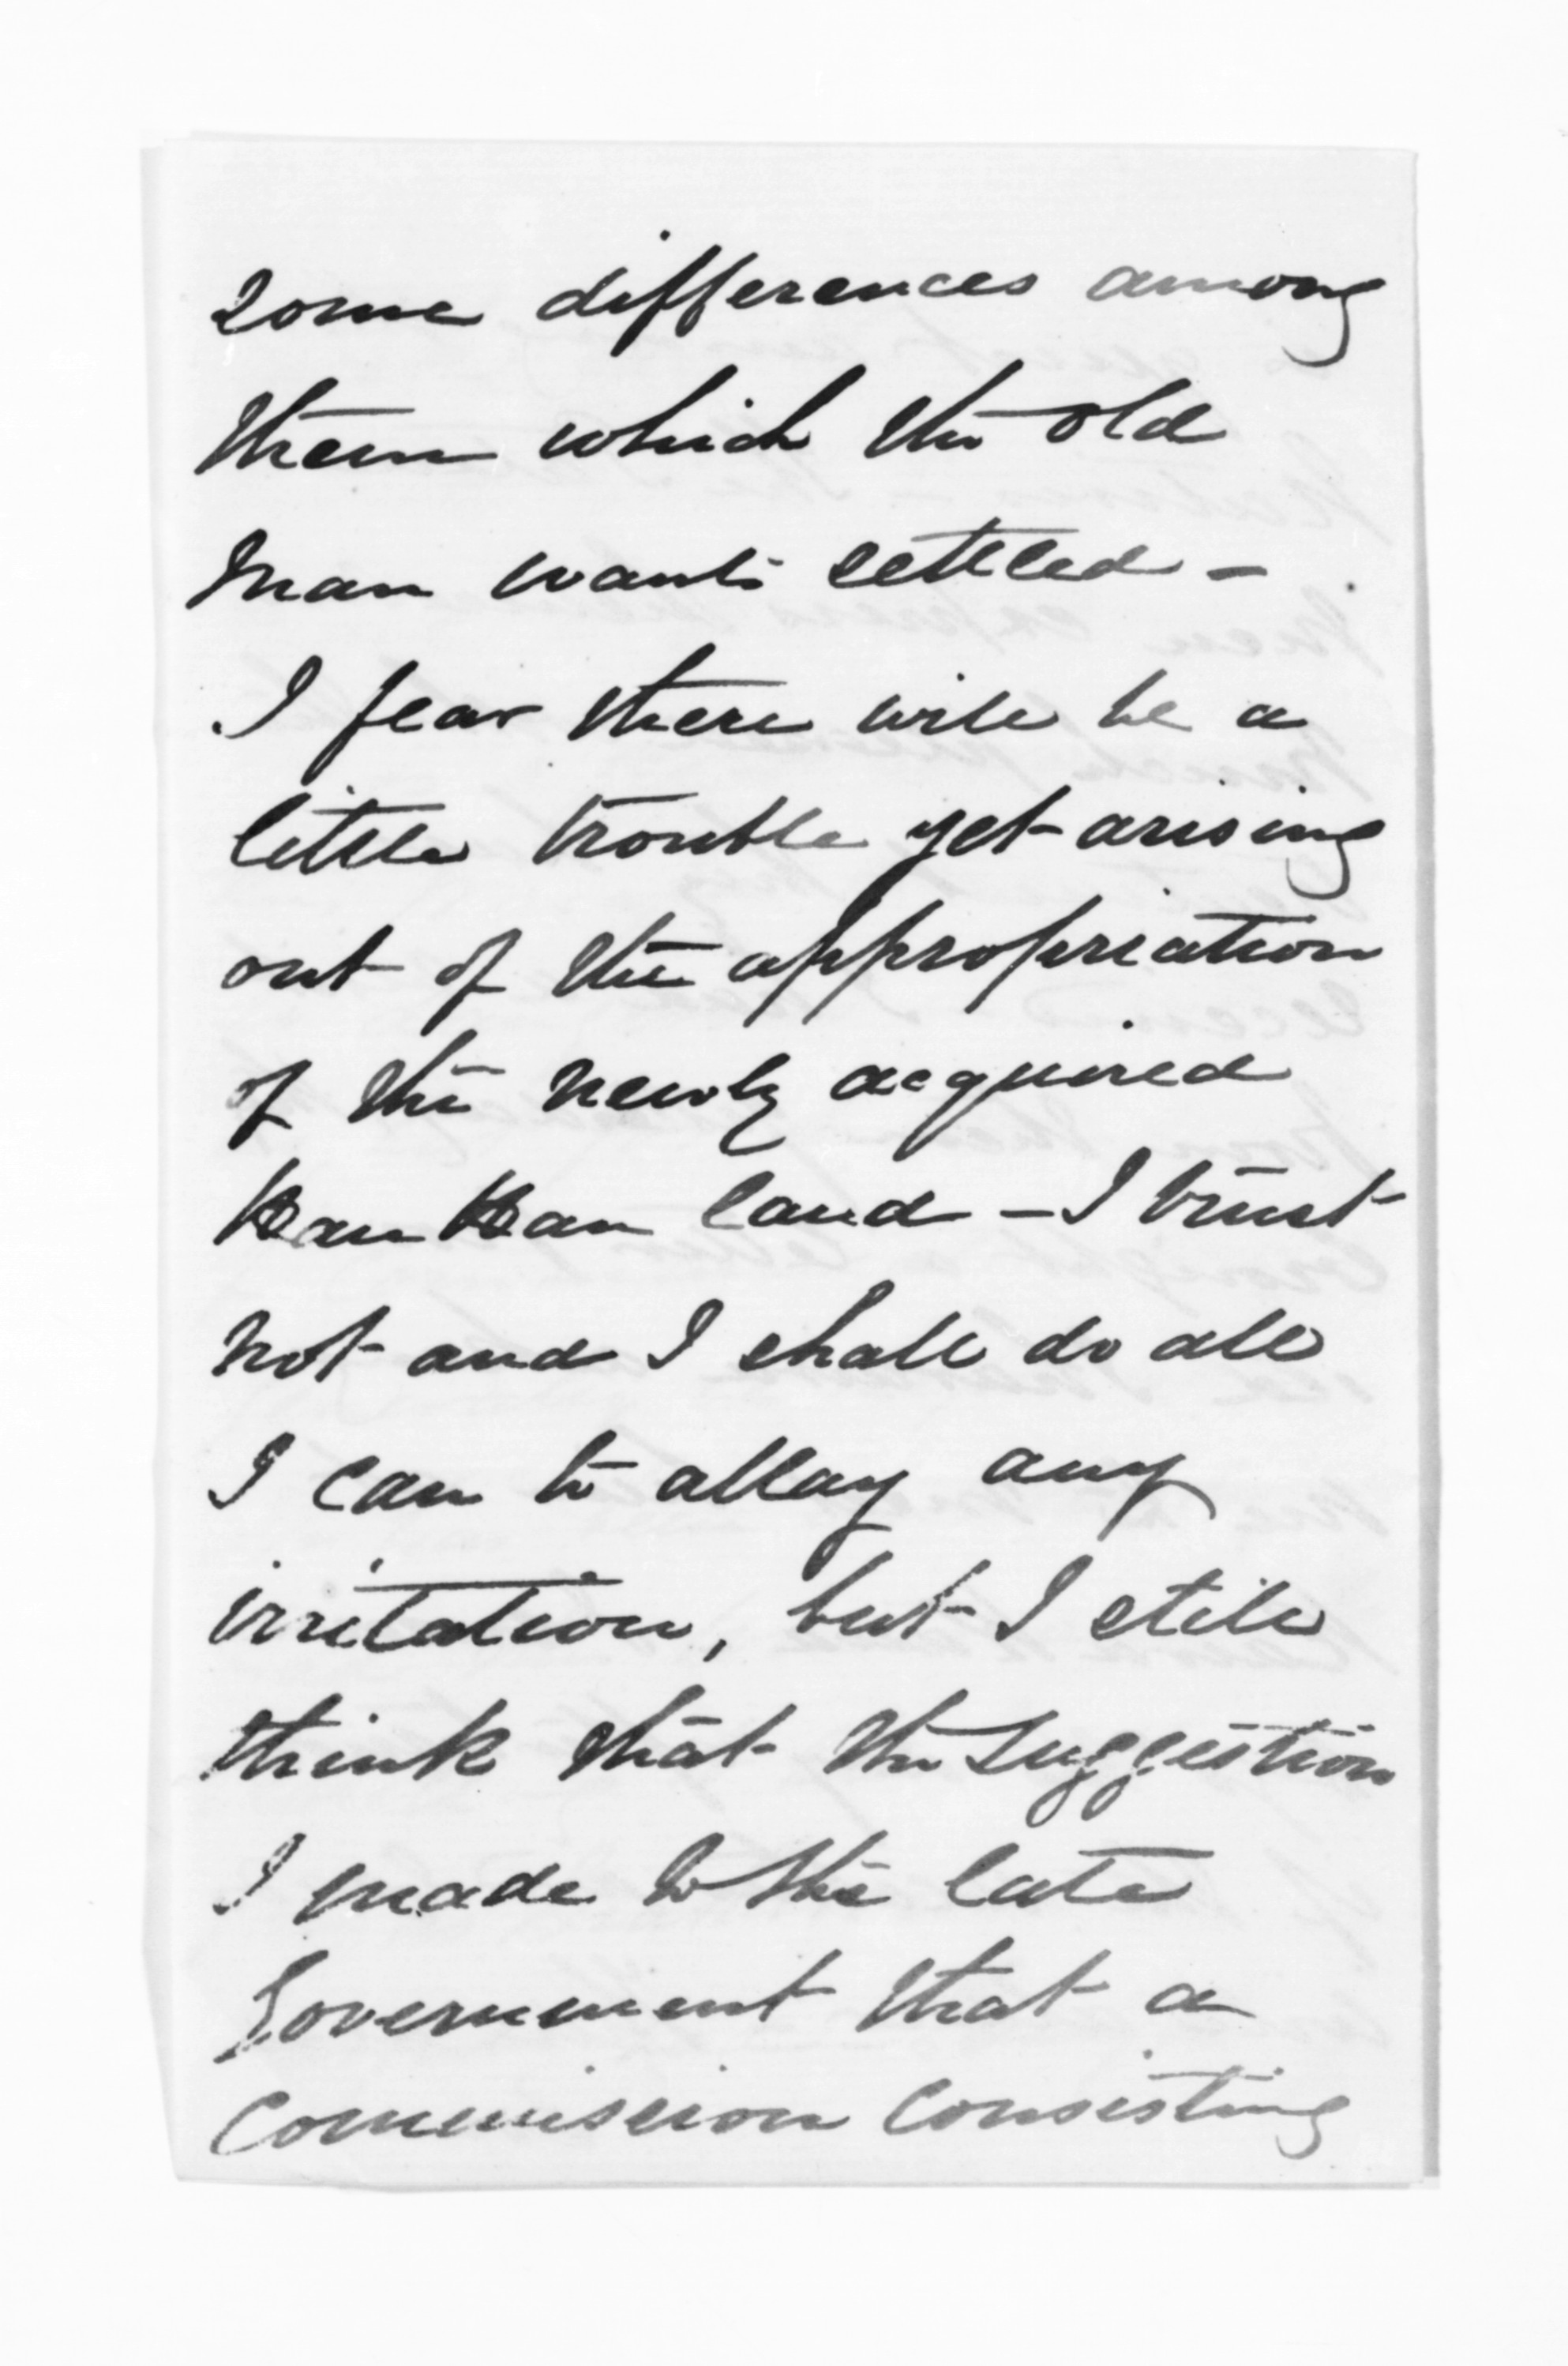 some differences among
them which the old
man wants settled -
I fear there will be a
little trouble yet arising
out of the appropriation
of the newly acquired
Kau Kau land - I trust
not and I shall do all
I can to allay any
irritation, but I still
think that the suggestion
I made to the late
Government that a
Commission consisting